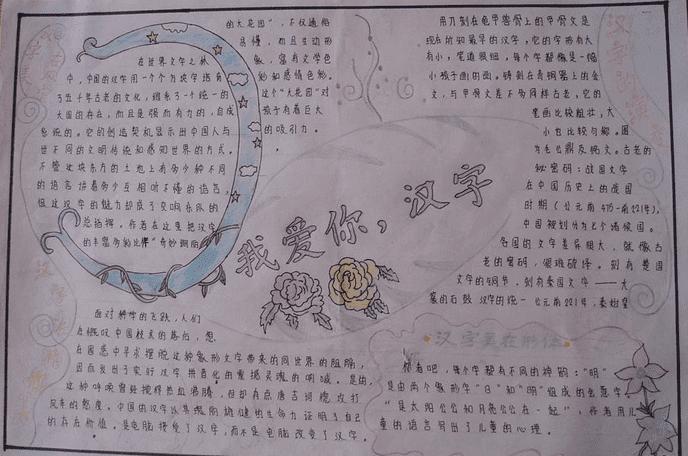 在世界文字之林
中，中国的汉字用一个个方块字培育
了五千年古老的文化，维系了一个统一的
大国的存在，而且是强而有力的，自成
系统的。它的创造契机显示出中国人与
世不同的文明传统和感知世界的方式。
不管这块东方的土地上有多少种不同
的语言，讲着多少互相听不懂的语言，
但这汉字的魅力却成了交响乐队的
总指挥，作者在这里把汉字
的丰富多彩比作“奇妙
的大花园”，不仅通俗
易懂，而且生动形
象，富有文学色
彩和感情色彩。
这个“大花园”对
孩子有着巨大
的吸引力。
用刀刻在龟甲兽骨上的甲骨文是
现在所知最早的汉字，它的字形有大
有小，笔道很细，每个字都像是一幅
小孩子画的画。铸刻在青铜器上的金
文，与甲骨文差不多同样古老，它的
笔画比较粗壮，大
小也比较匀称。图
为毛公鼎及铭文。古老的
秘密码：战国文字
在中国历史上的战国
时期（公元前475-前221年），
中国被划分为七个诸侯国。
各国的文字差异很大，就像古
老的密码，很难破译。刻有楚国
文字的铜节，刻有秦国文字——大
篆的石鼓 汉字的统一 公元前221年，秦始皇
我爱你，汉字
面对科学的飞跃，人们
在慨叹中国技术的落后，想
在困惑中寻求摆脱这种象形文字带来的同世界的阻隔，
因而发出了实行汉字拼音化的震撼灵魂的呐喊。是的，
这种呼唤曾经搅拌热血沸腾，但却有点唐吉诃德攻打
风车的态度。中国的汉字以其瑰丽雄健的生命力证明了自己
的存在价值。是电脑接受了汉字，而不是电脑改变了汉字。
汉字美在形体
你看吧，每个字都有不同的神韵：“明”
是由两个象形字“日”和“明”组成的会意字，
“是太阳公公和月亮公公在一起”，作者用儿
童的语言写出了儿童的心理。